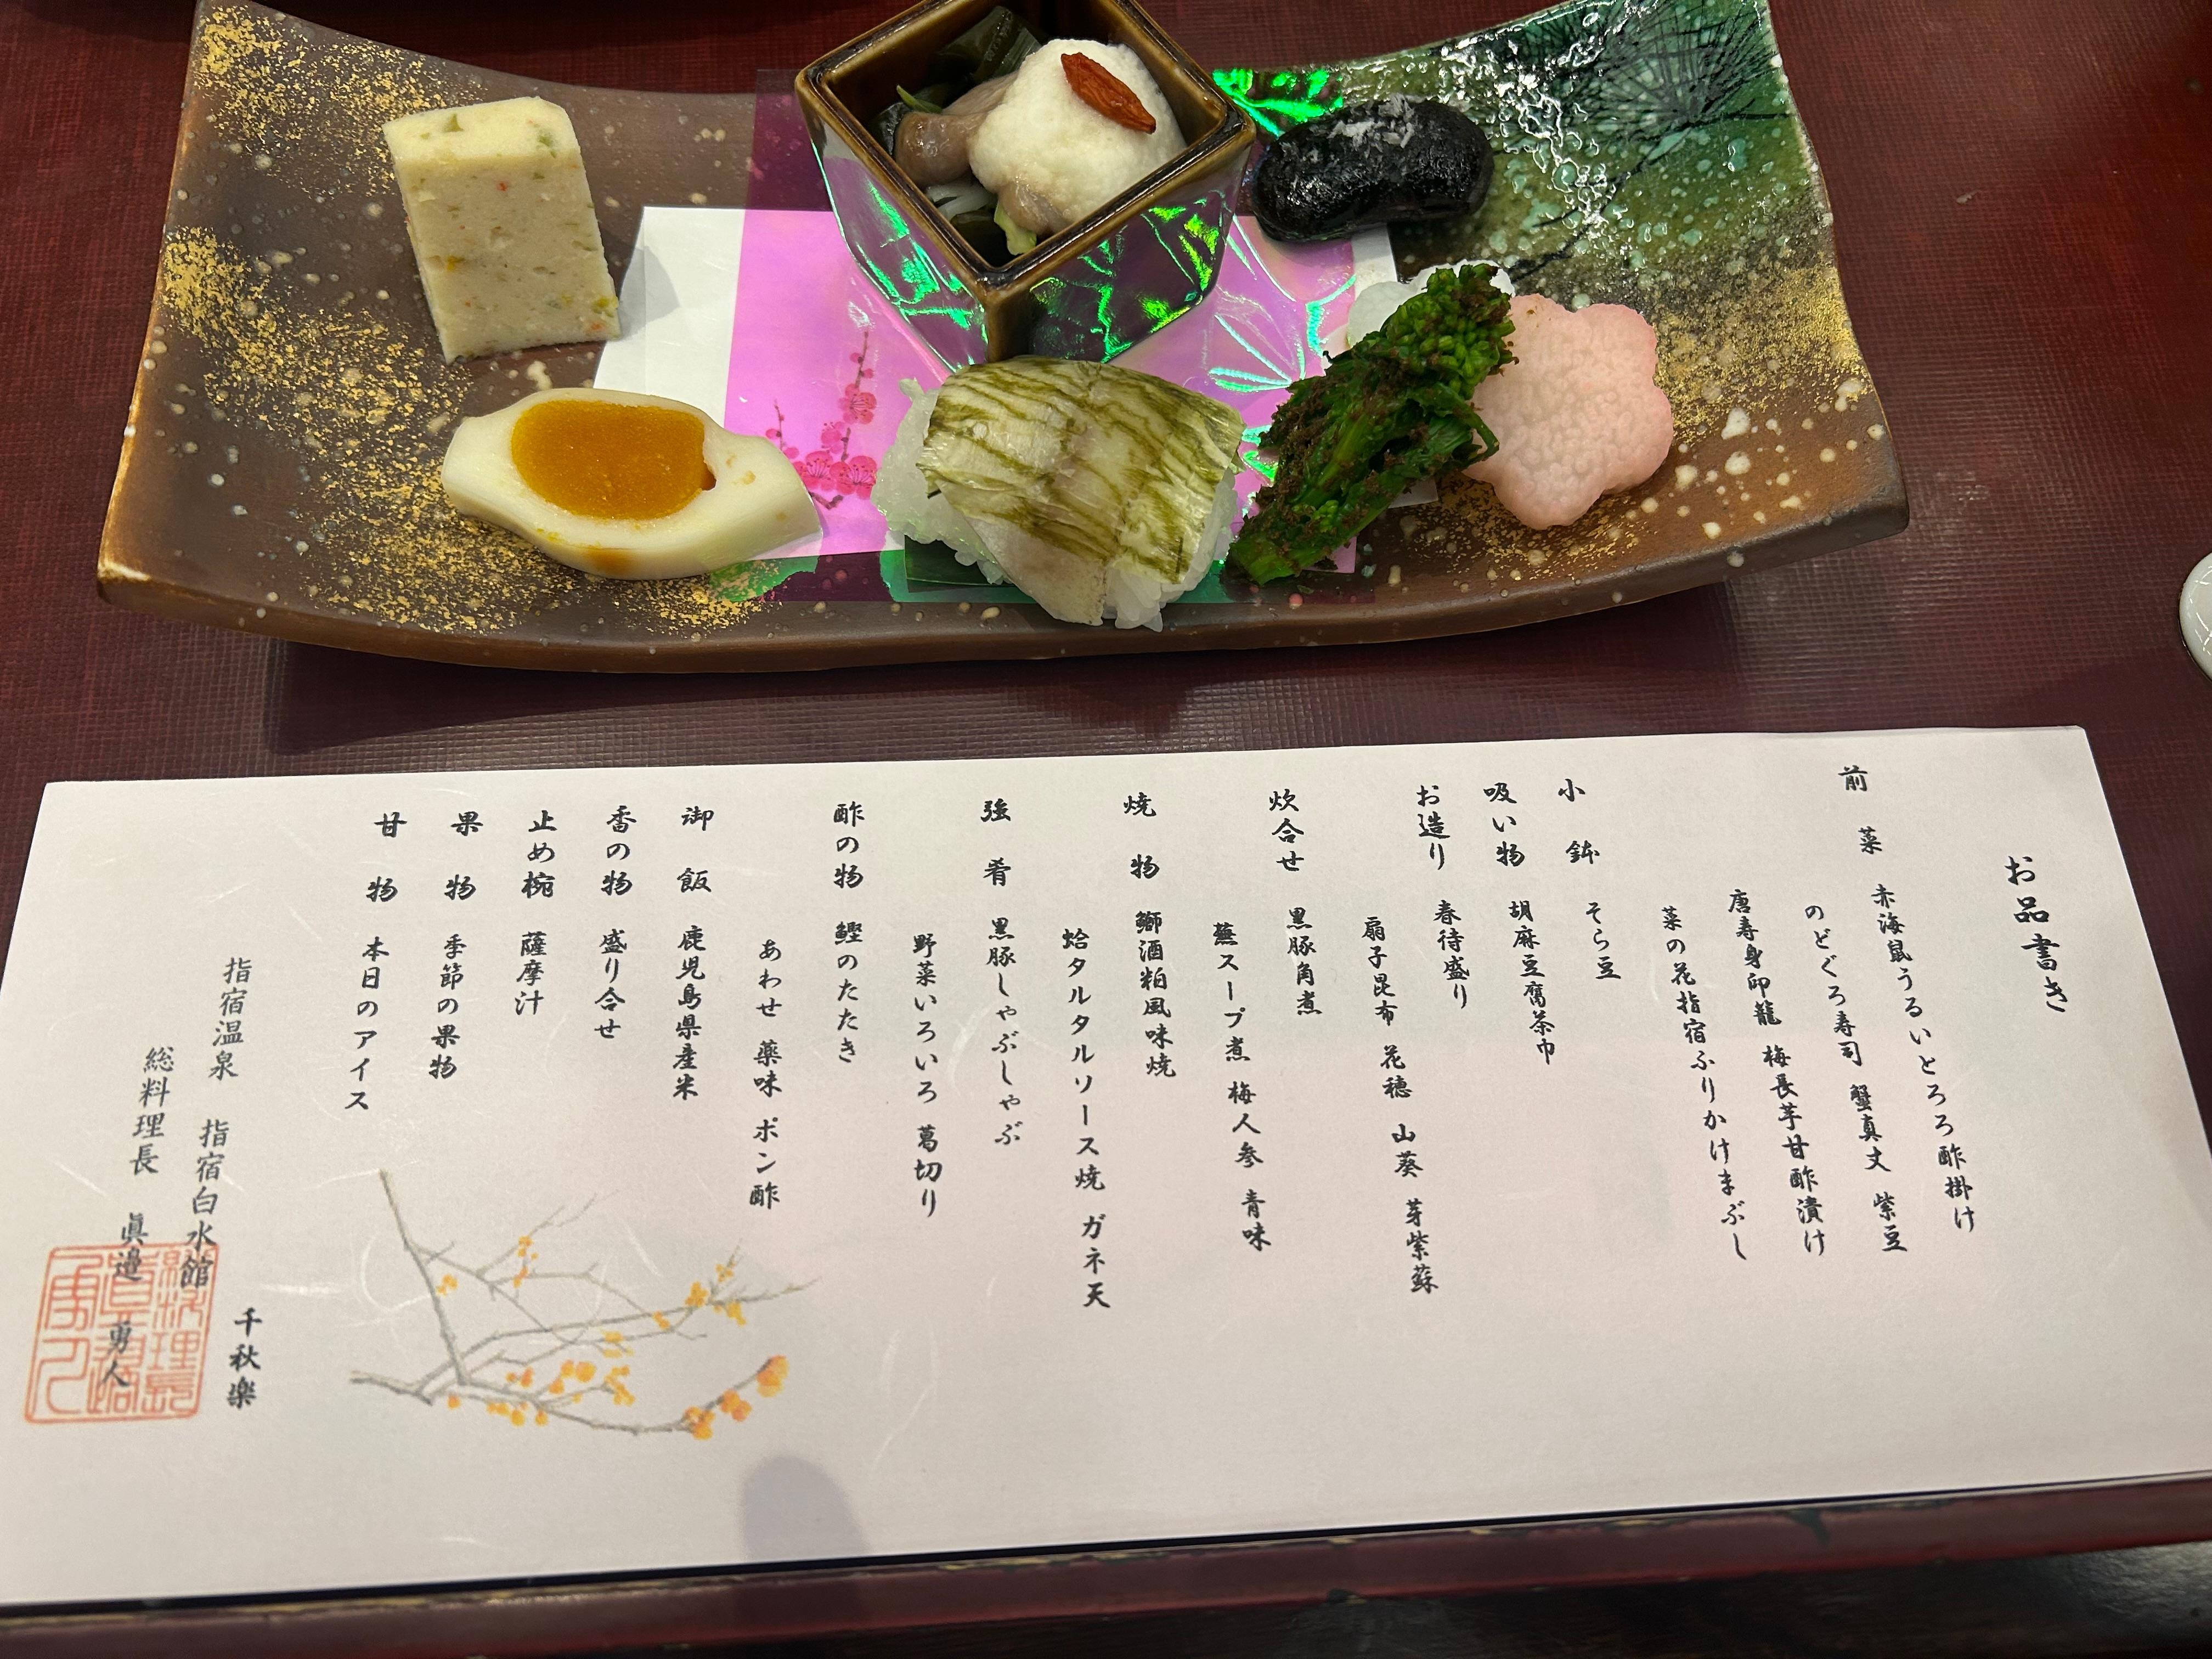 お品書き
前 菜 赤海鼠うるいとろろ酢掛け
のどぐろ寿司 蟹真丈 紫豆
唐寿身印籠 梅長芋甘酢漬け
菜の花指宿ふりかけまぶし
小 鉢 そら豆
吸い物 胡麻豆腐茶巾
お造り 春待盛り
扇子昆布 花穂 山葵 芽紫蘇
炊合せ 黒豚角煮
蕪スープ煮 梅人参 青味
焼 物 鰤酒粕風味焼
蛤タルタルソース焼 ガネ天
強 肴 黒豚しゃぶしゃぶ
野菜いろいろ 葛切り
酢の物 鰹のたたき
あわせ 薬味 ポン酢
御 飯 鹿児島県産米
香の物 盛り合せ
止め椀 薩摩汁
果 物 季節の果物
甘 物 本日のアイス
千秋楽
指宿温泉 指宿白水館
総料理長 眞邉 勇人
総料理長
眞邉
勇人